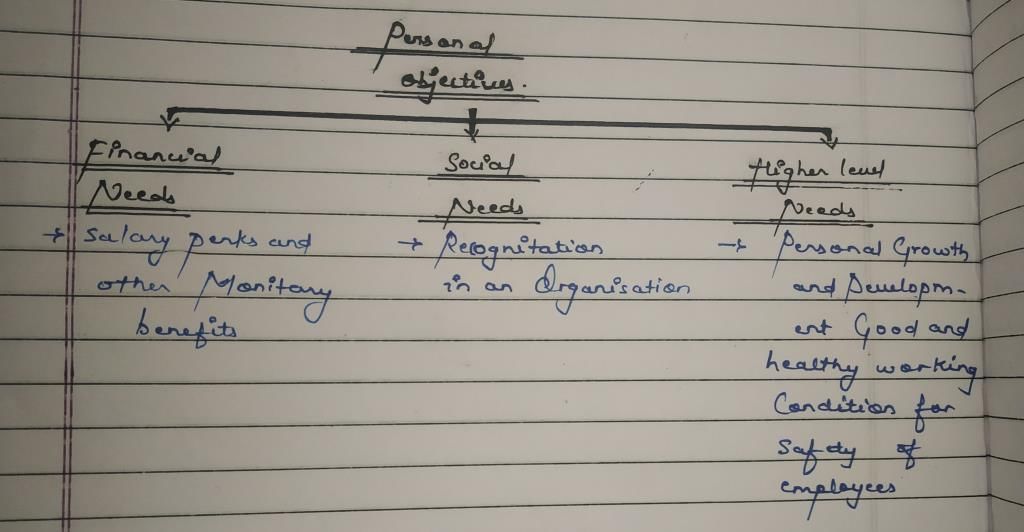 Personal
objectives.
Financial
Needs
→ Salary perks and
other Monitary
benefits
Social
Needs
→ Recognitation
in an Organisation
Higher level
Needs
→ Personal Growth
and Developm-
ent Good and
healthy working
Condition for
Safety of
employees